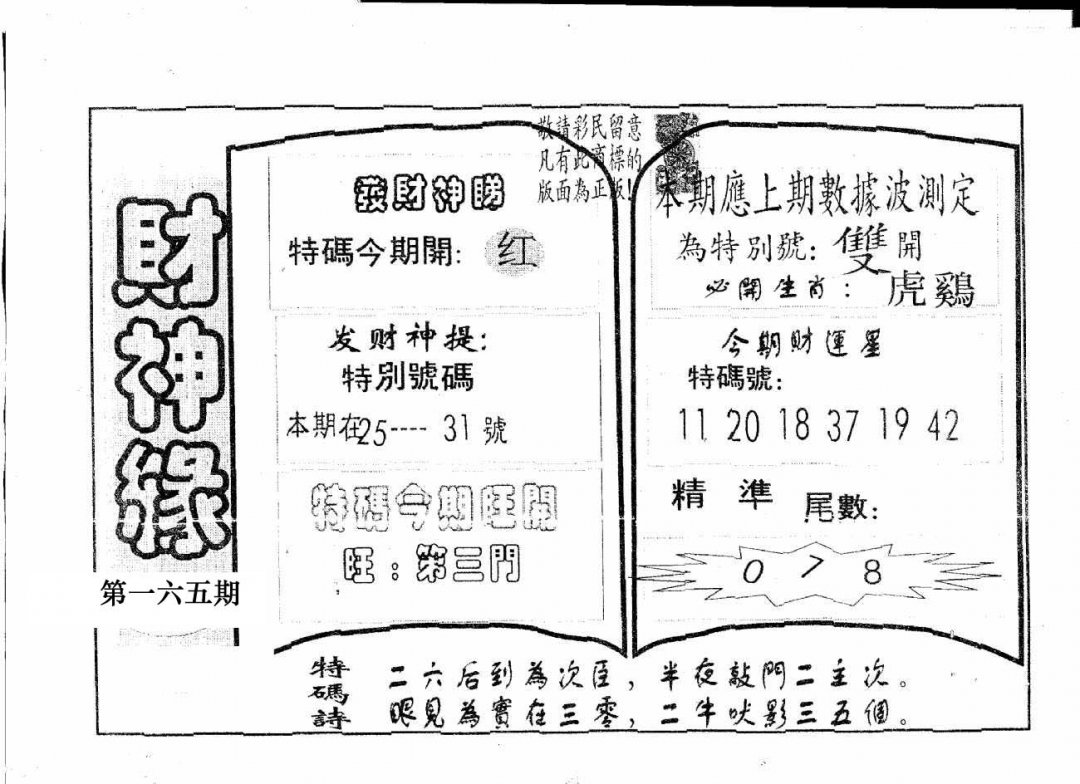 財神緣
第一六五期
敬請彩民留意
凡有此商標的
版面為正版!
發財神賜
特碼今期開: 红
发财神提:
特別號碼
本期在25----31號
特碼今期旺開
旺:第三門
本期應上期數據波測定
為特別號:雙開
必開生肖:虎鷄
今期財運星
特碼號:
11 20 18 37 19 42
精準 尾數:
0 7 8
特碼詩
二六后到為次臣,半夜敲門二主次。
眼見為實在三零,二牛吠影三五個。